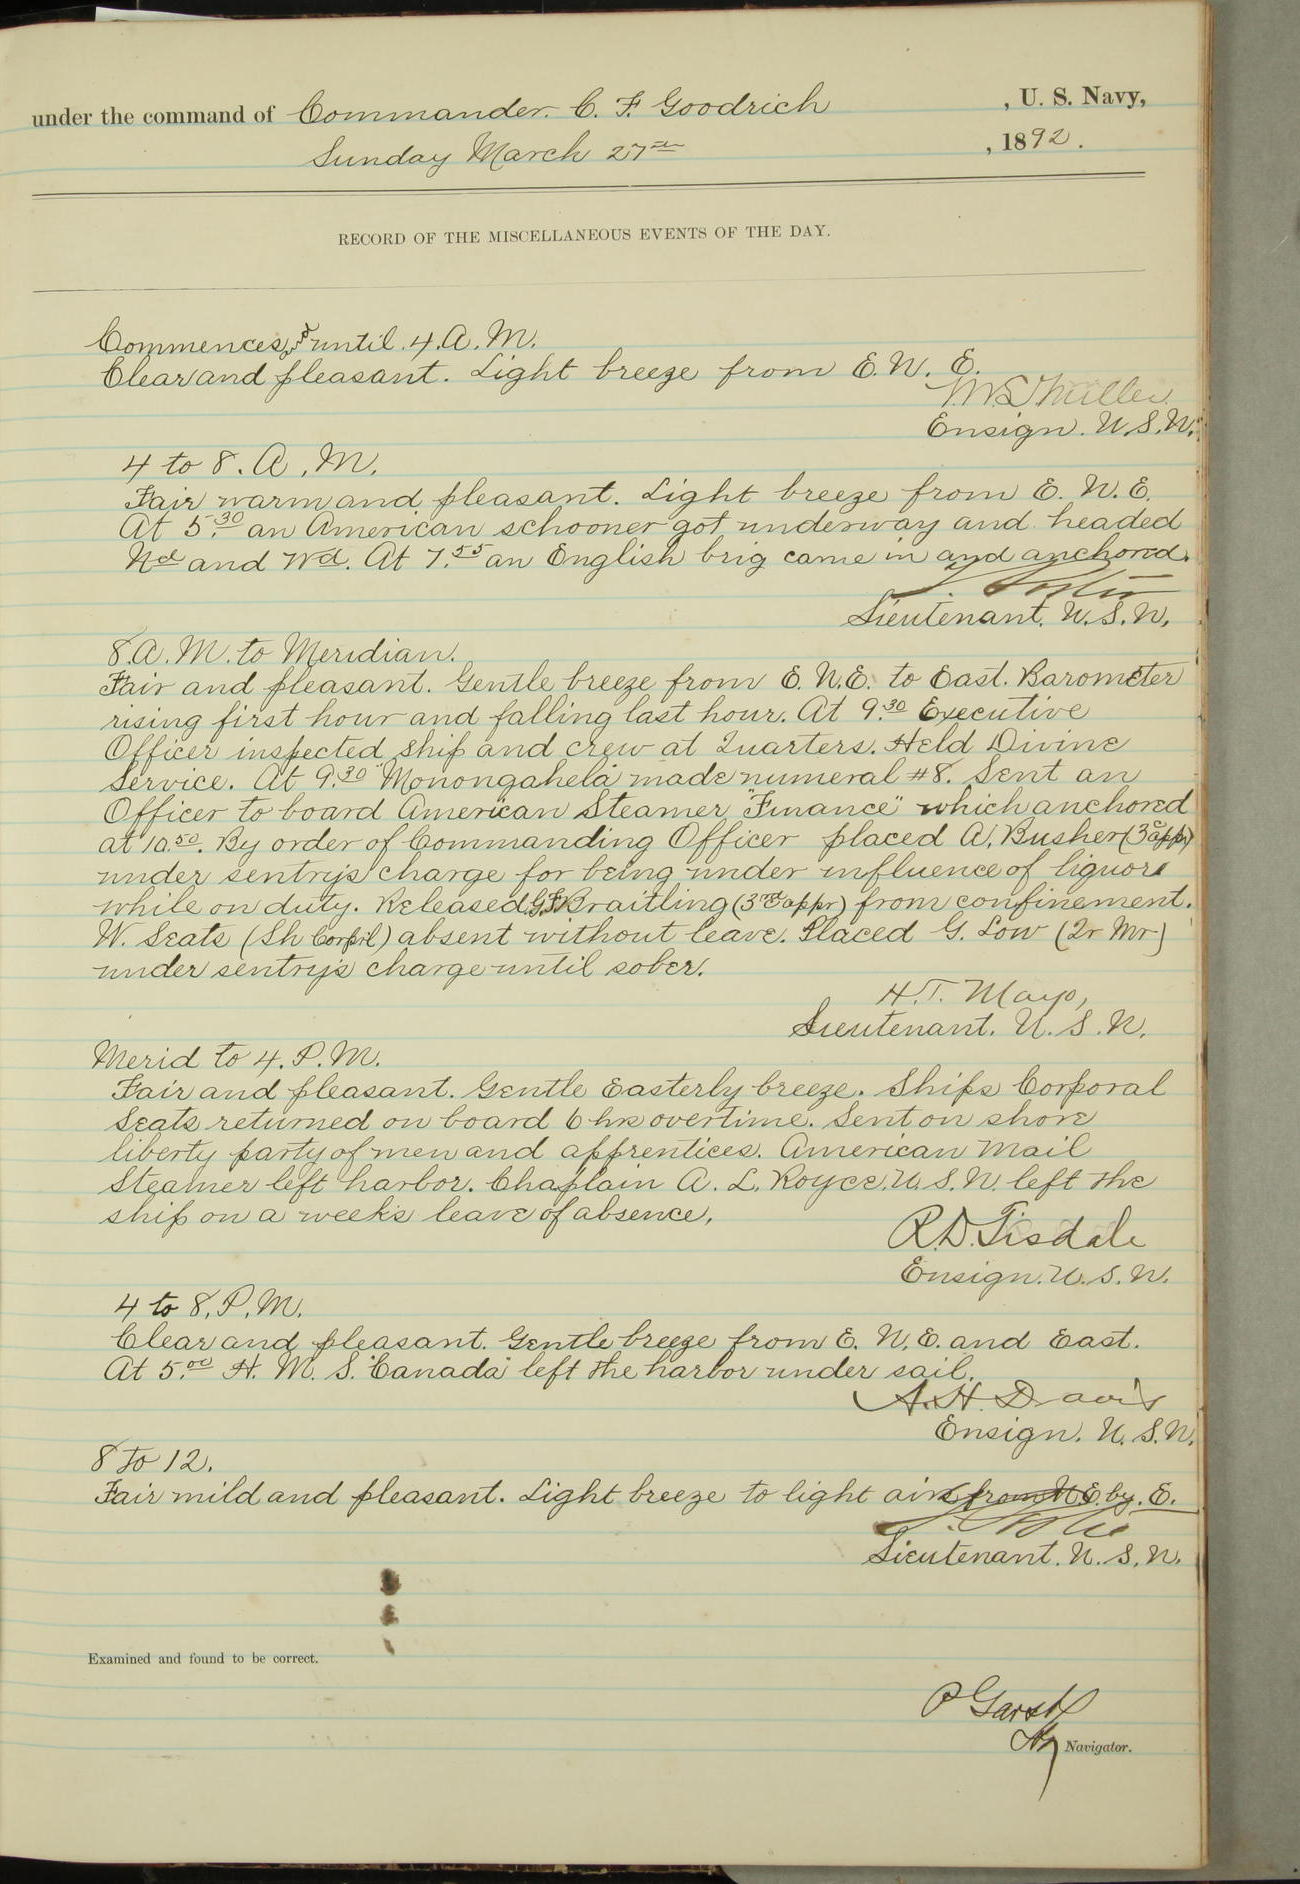 under the command of Commander. C. F. Goodrich , U. S. Navy,
Sunday March 27th , 1892.
RECORD OF THE MISCELLANEOUS EVENTS OF THE DAY.
Commences and until 4. A. M.
Clear and pleasant. Light breeze from E. N. E.
Miller
Ensign. U. S. N.
4 to 8. A. M.
Fair warm and pleasant. Light breeze from E. N. E.
At 5.30 an American schooner got underway and headed
Nd and Wd. At 7.55 an English brig came in and anchored.
Lieutenant. U. S. N.
8. A. M. to Meridian.
Fair and pleasant. Gentle breeze from E. N. E. to East. Barometer
rising first hour and falling last hour. At 9.30 Executive
Officer inspected ship and crew at Quarters. Held Divine
Service. At 9.30 "Monongahela" made numeral #8. Sent an
Officer to board American Steamer "Finance" which anchored
at 10.50. By order of Commanding Officer placed A. Busher (3c appr)
under sentry's charge for being under influence of liquors
while on duty. Released G. F. Braitling (3rd appr) from confinement.
W. Seats (Sh Corp'l) absent without leave. Placed G. Low (Qr Mr)
under sentry's charge until sober.
H. T. Mayo,
Lieutenant. U. S. N.
Merid to 4. P. M.
Fair and pleasant. Gentle Easterly breeze. Ships Corporal
Seats returned on board 6 hrs overtime. Sent on shore
liberty party of men and apprentices. American Mail
Steamer left harbor. Chaplain A. L. Royce. U. S. N. left the
ship on a week's leave of absence.
R. D. Tisdale
Ensign. U. S. N.
4 to 8. P. M.
Clear and pleasant. Gentle breeze from E. N. E. and East.
At 5.00 H. M. S. "Canada" left the harbor under sail.
A. H. Davis
Ensign. U. S. N.
8 to 12.
Fair mild and pleasant. Light breeze to light airs from N. E. by. E.
Lieutenant. U. S. N.
Examined and found to be correct.
P Garst
Navigator.